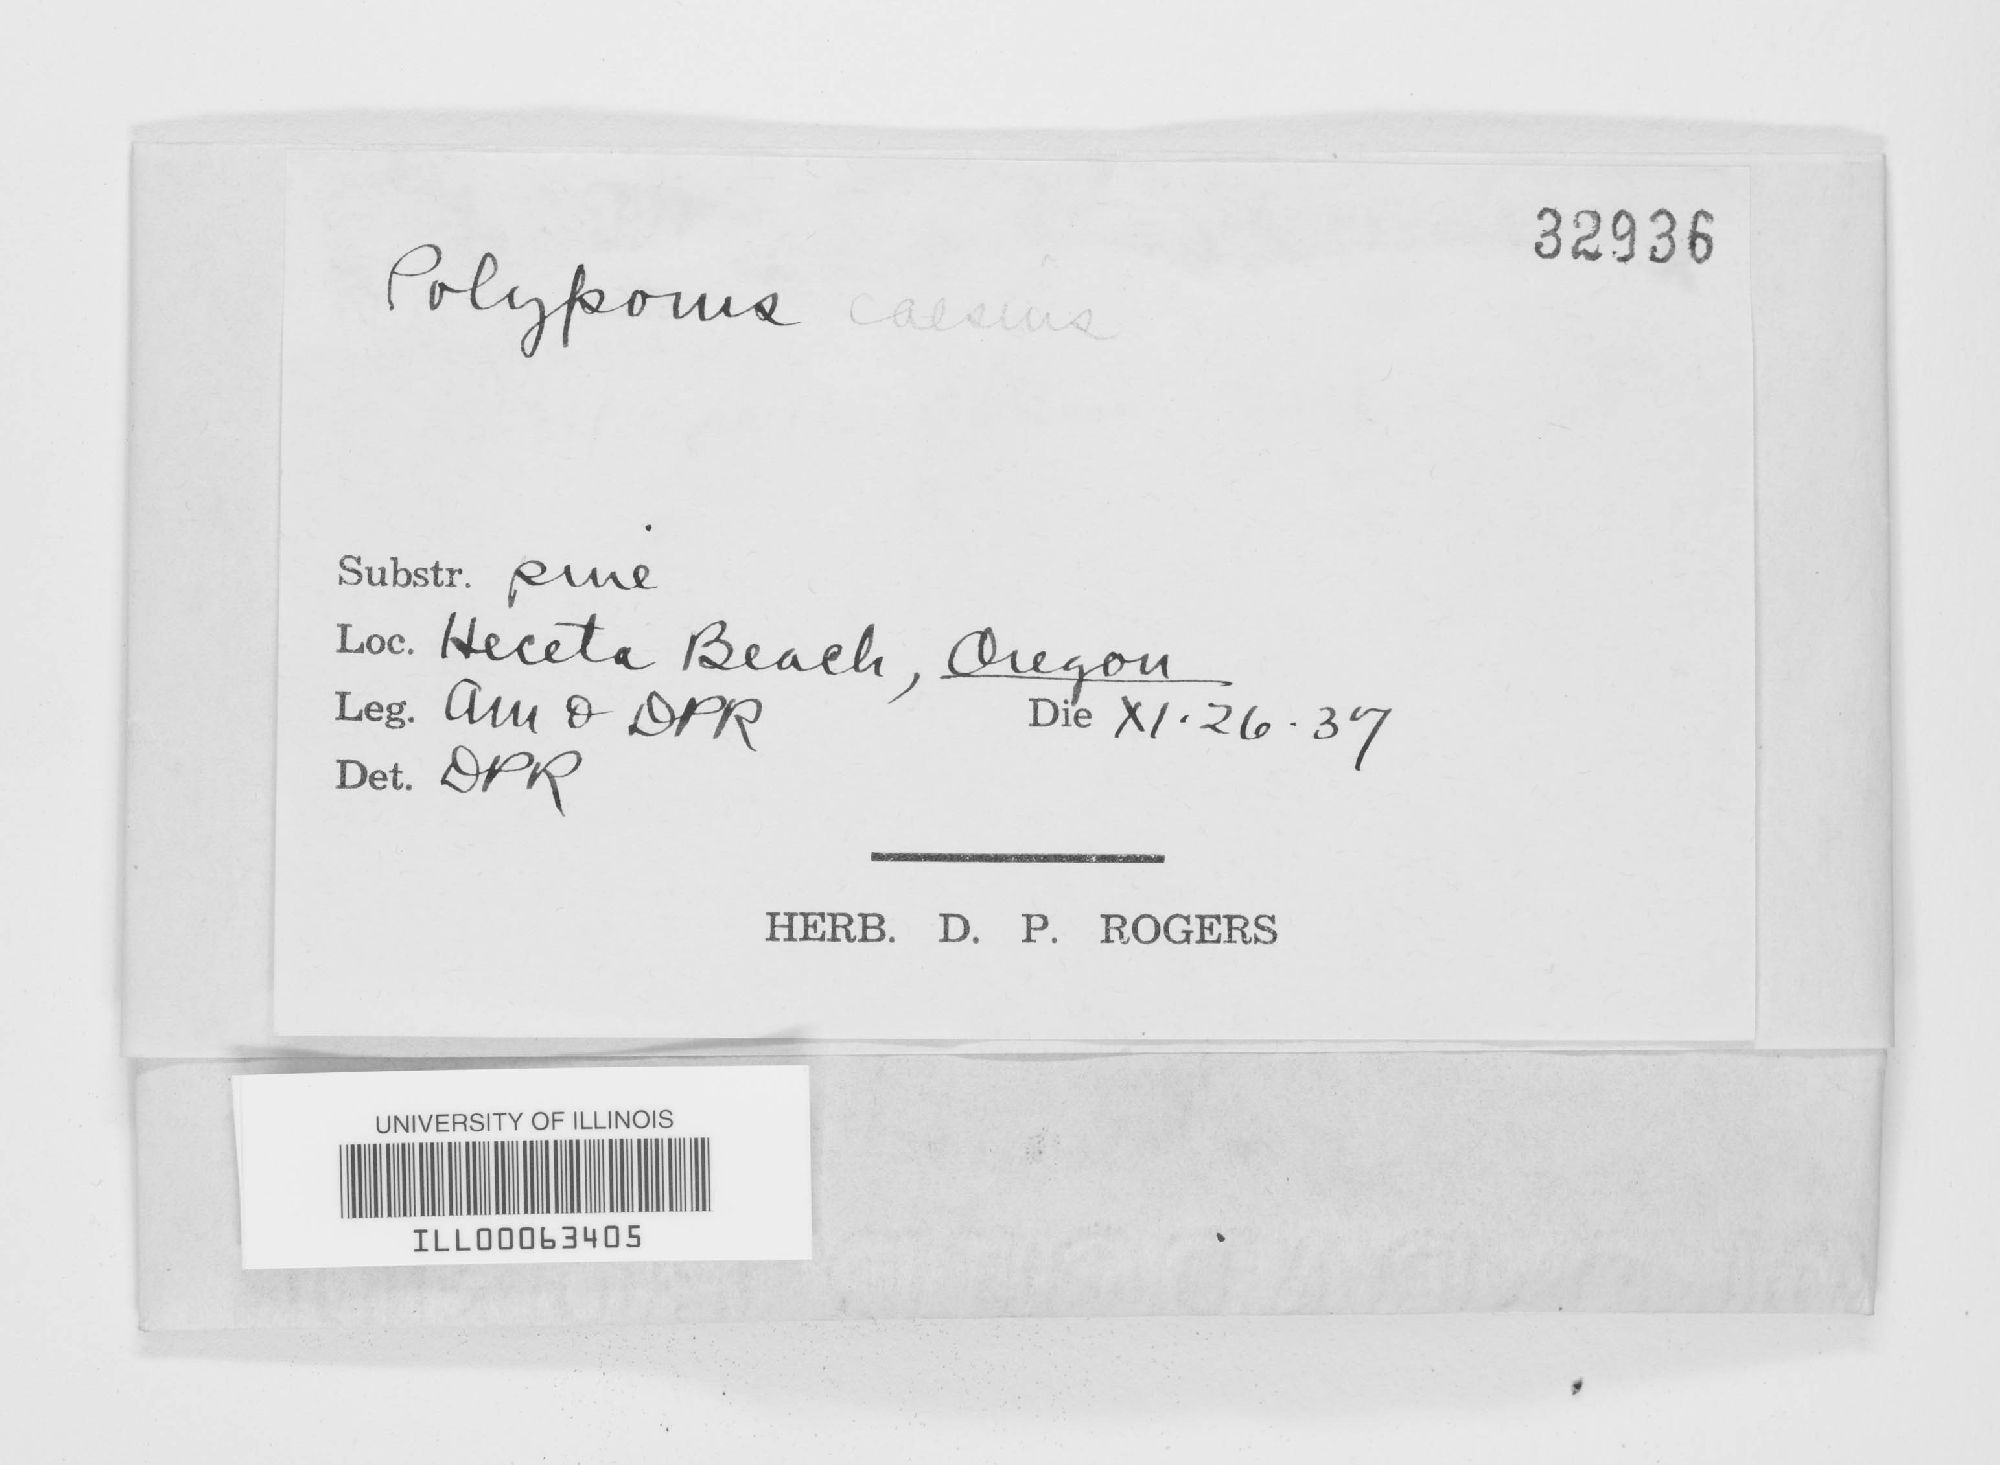 32936
Polyporus caesius
Substr. pine
Loc. Heceta Beach, Oregon
Leg. AM & DPR Die XI.26.37
Det. DPR
HERB. D. P. ROGERS
UNIVERSITY OF ILLINOIS
ILL00063405